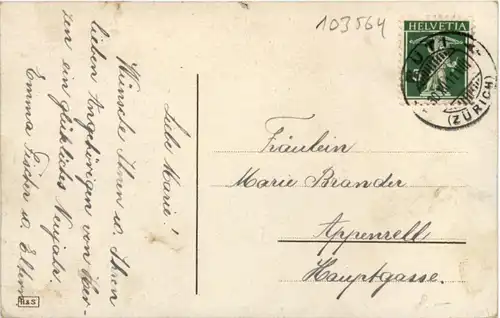 103564
HELVETIA
RÜTI
(ZÜRICH)
Liebe Marie!
Wünsche Ihnen u. Ihren
lieben Angehörigen von Her-
zen ein glückliches Neujahr.
Emma u. Eltern
Fräulein
Marie Brander
Appenzell,
Hauptgasse.